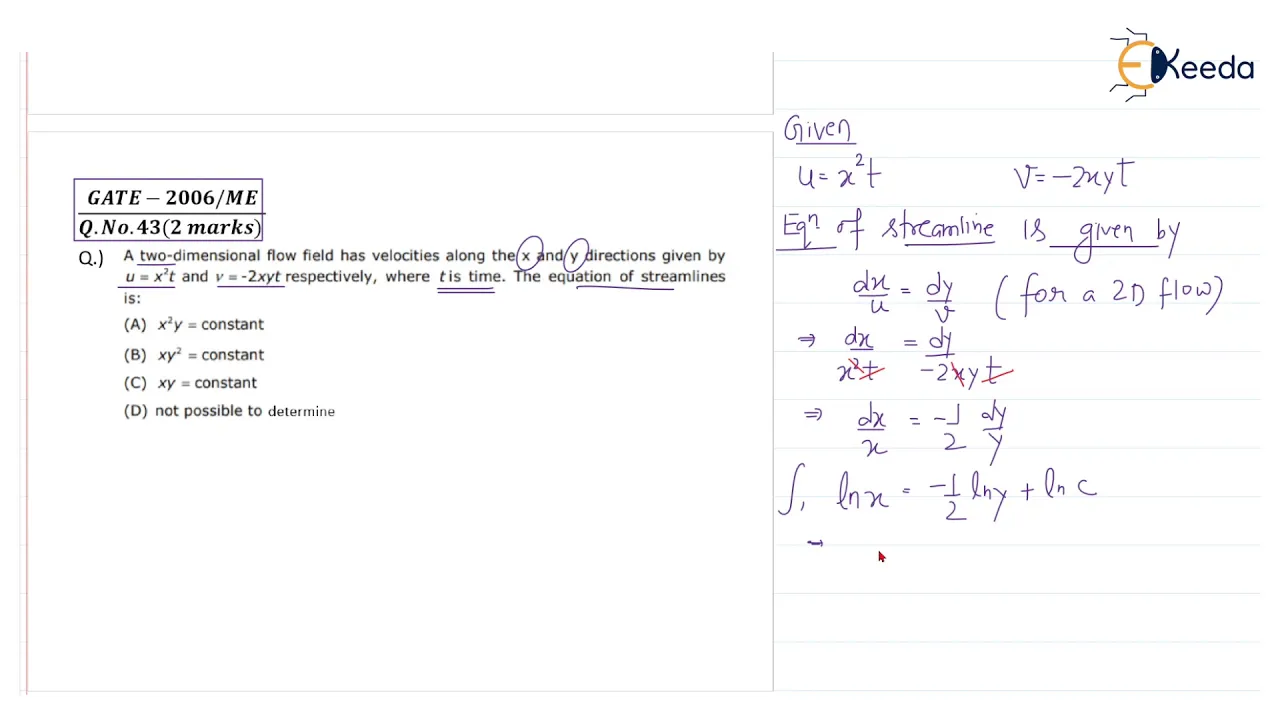 EKeeda
GATE − 2006/ME
Q.No.43(2 marks)
Q.) A two-dimensional flow field has velocities along the x and y directions given by
u = x²t and v = -2xyt respectively, where t is time. The equation of streamlines
is:
(A) x²y = constant
(B) xy² = constant
(C) xy = constant
(D) not possible to determine
Given
u = x²t V = -2xyt
Eqⁿ of streamline is given by
dx/u = dy/v (for a 2D flow)
⇒ dx/x²t = dy/-2xyt
⇒ dx/x = -1/2 dy/y
∫, ln x = -1/2 ln y + ln c
→